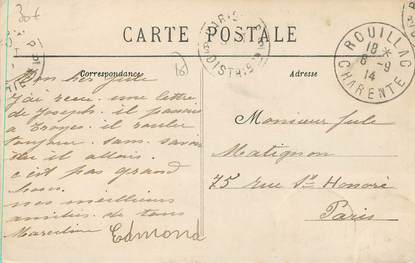 30f
CARTE POSTALE
Correspondance
Adresse
PARIS
DISTRIB
ROUILLAC
18 *
6 - 9
14
CHARENTE
Mon cher Jule
J'ai reçu une lettre
de Joseph. il passait
à Troyes. il rouler
toujour. sans savoir
ou il allais.
c'est pas grand
chose.
nos meilleurs
amitiés de tous
Marceline Edmond
Monsieur Jule
Matignon
75 rue St Honoré
Paris